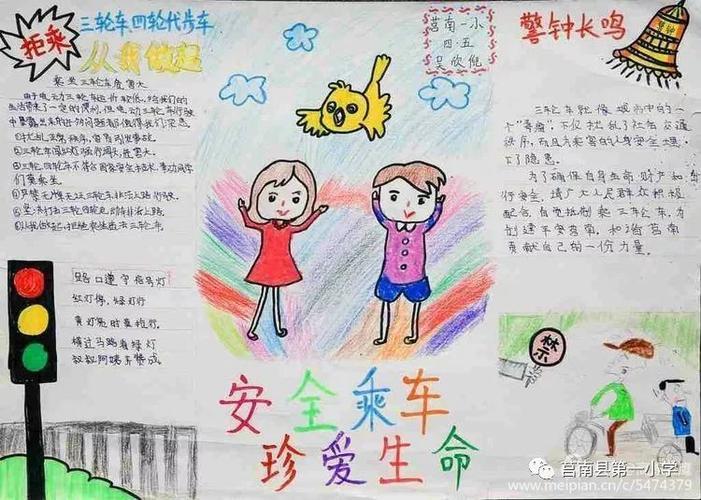 拒乘
三轮车、四轮代步车
从我做起
莒南一小
四·五
吴欣倪
警钟长鸣
警钟
乘坐三轮车危害大
由于电动三轮车运价较低，给我们的
生活带来了一定的便利，但电动三轮车行驶
①扰乱正常秩序，容易引发事故。
③三轮、四轮车不符合国家安全技术
们莫乘坐。
三轮车就像城市中的一
个"毒瘤"，不仅扰乱了社会交通
秩序，而且为乘客的人身安全埋
下了隐患。
为了确保自身生命财产和出
行安全，请广大人民群众积极
配合，自觉抵制乘三轮车，为
创建平安莒南，和谐莒南
贡献自己的一份力量。
路口遵守信号灯
红灯停，绿灯行
黄灯亮时莫抢行。
横过马路看绿灯
叔叔阿姨齐赞成
禁
安全乘车
珍爱生命
莒南县第一小学
www.meipian.cn/c/5474379